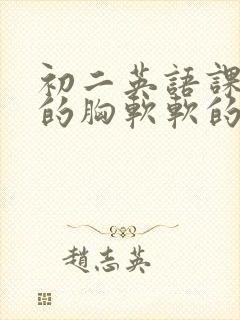 初二英語課
的胸軟軟的
趙志英